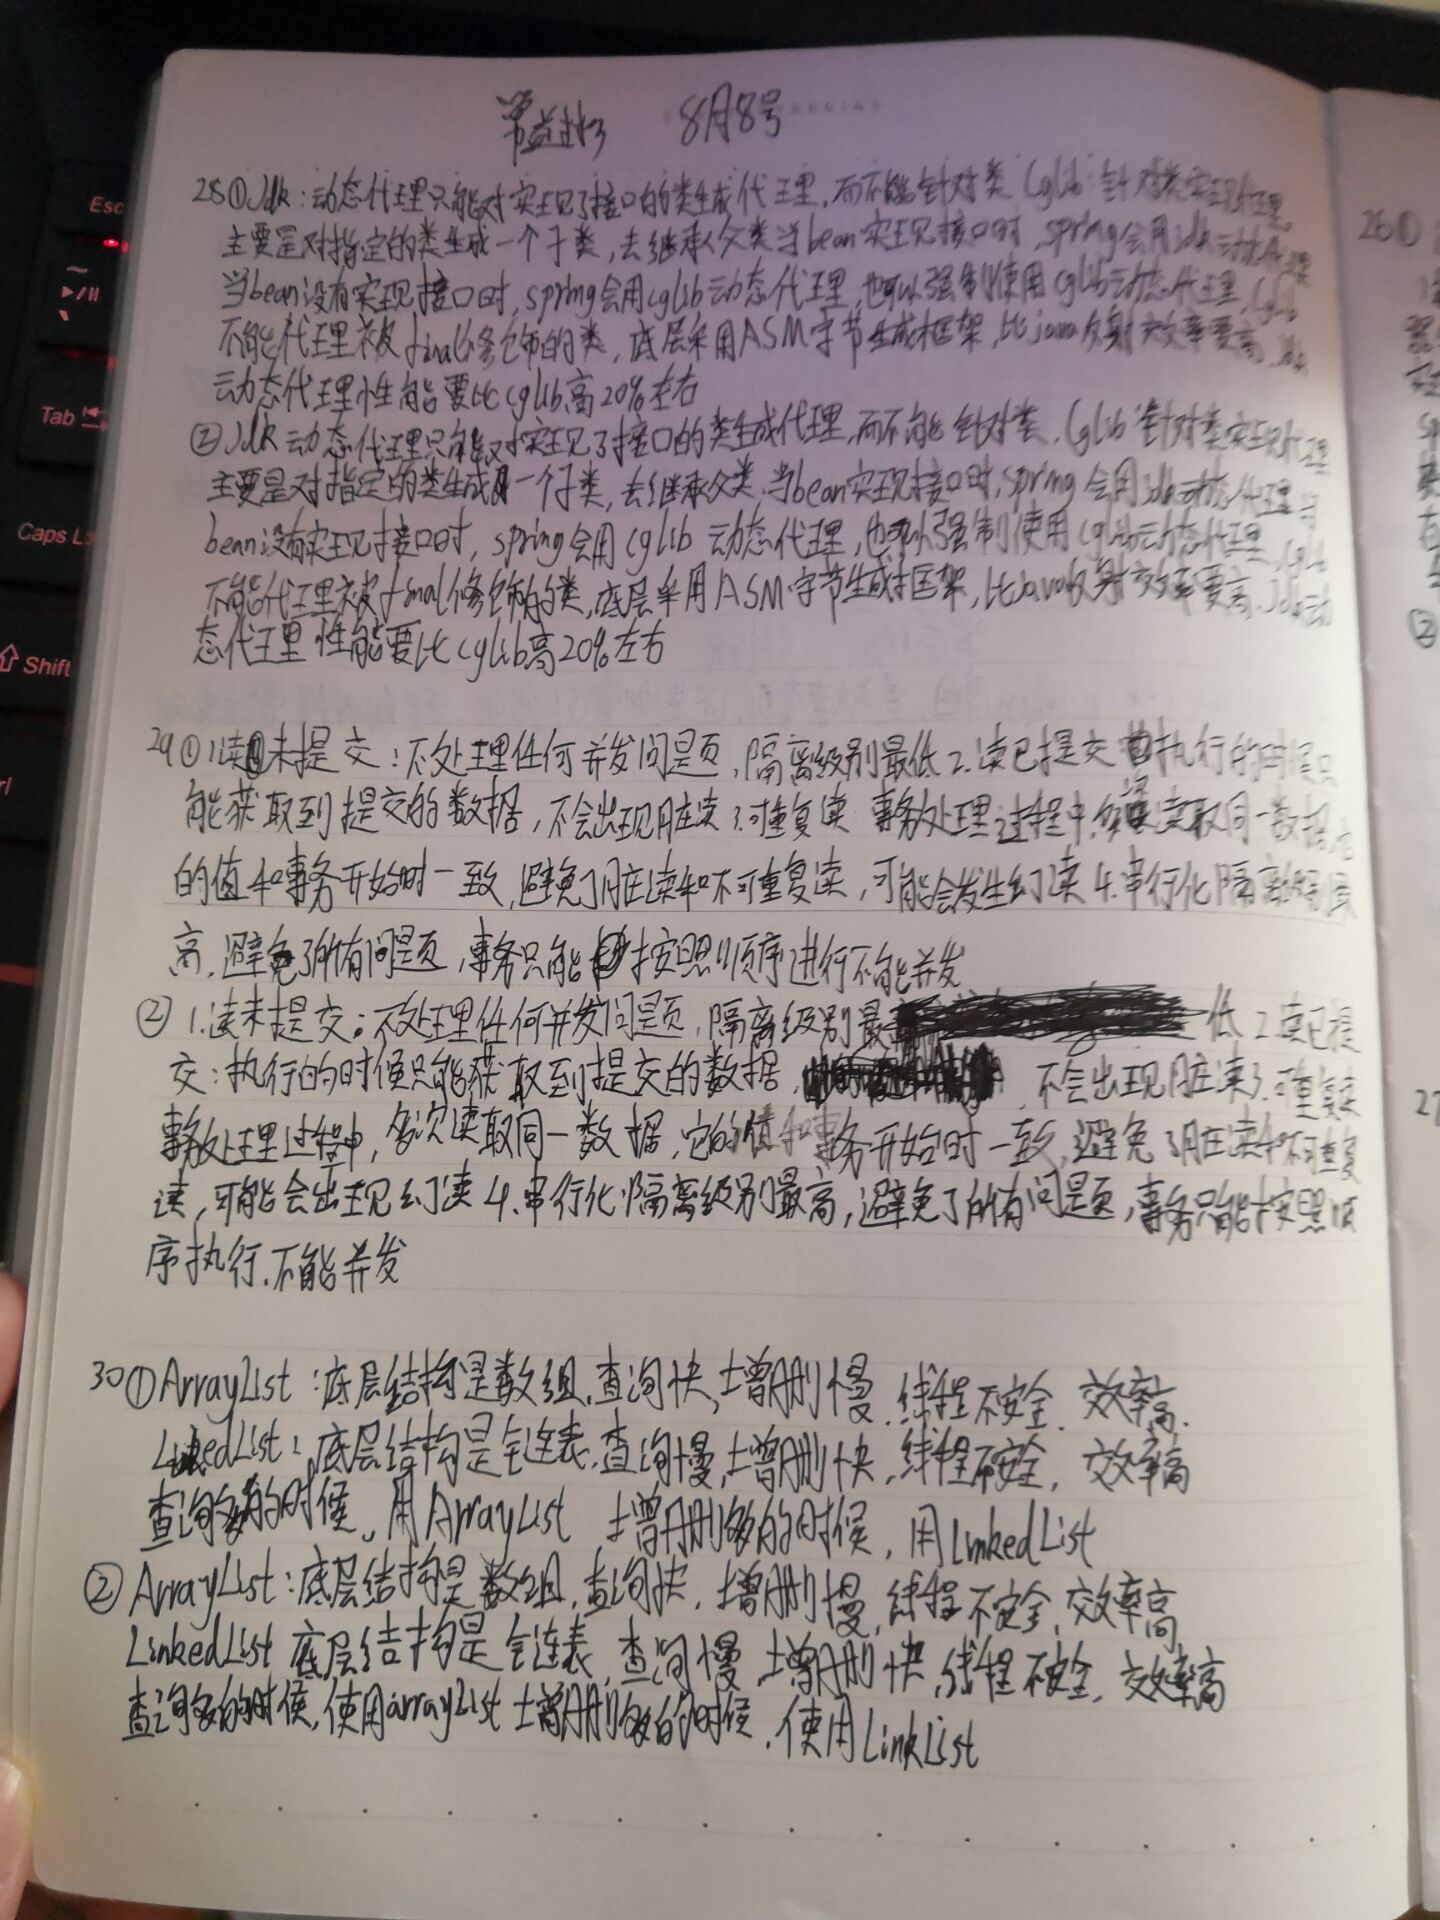 8月8号
28①Jdk:动态代理只能对实现了接口的类生成代理,而不能针对类 Cglib:针对类实现代理,
主要是对指定的类生成一个子类,去继承父类当bean实现接口时,spring会用jdk动态代理
当bean没有实现接口时,spring会用cglib动态代理,也可以强制使用cglib动态代理,Cglib
不能代理被final修饰的类,底层采用ASM字节生成框架,比java反射效率要高,Jdk
动态代理性能要比cglib高20%左右
②Jdk动态代理只能对实现了接口的类生成代理,而不能针对类,Cglib:针对类实现代理
主要是对指定的类生成一个子类,去继承父类,当bean实现接口时,spring会用Jdk动态代理,当
bean没有实现接口时,spring会用cglib动态代理,也可以强制使用cglib动态代理,cglib
不能代理被final修饰的类,底层采用ASM字节生成框架,比java反射效率要高、Jdk动
态代理性能要比cglib高20%左右
29①1.读未提交:不处理任何并发问题,隔离级别最低2.读已提交 执行的时候只
能获取到提交的数据,不会出现脏读3.可重复读 事务处理过程中,多次读取同一数据,它
的值和事务开始时一致,避免了脏读和不可重复读,可能会发生幻读4.串行化隔离级别最
高,避免了所有问题,事务只能按照顺序进行不能并发
②1.读未提交:不处理任何并发问题,隔离级别最低2.读已提
交:执行的时候只能获取到提交的数据,不会出现脏读3.可重复读
事务处理过程中,多次读取同一数据,它的值和事务开始时一致,避免了脏读和不可重复
读,可能会出现幻读4.串行化:隔离级别最高,避免了所有问题,事务只能按照顺
序执行.不能并发
30①ArrayList:底层结构是数组,查询快,增删慢,线程不安全,效率高,
LinkedList:底层结构是链表,查询慢,增删快,线程不安全,效率高
查询多的时候,用ArrayList 增删多的时候,用LinkedList
②ArrayList:底层结构是数组,查询快,增删慢,线程不安全,效率高
LinkedList底层结构是链表,查询慢,增删快,线程不安全,效率高
查询多的时候,使用arrayList增删多的时候,使用LinkList
Esc
Tab
Caps L
Shift
26①
②
27